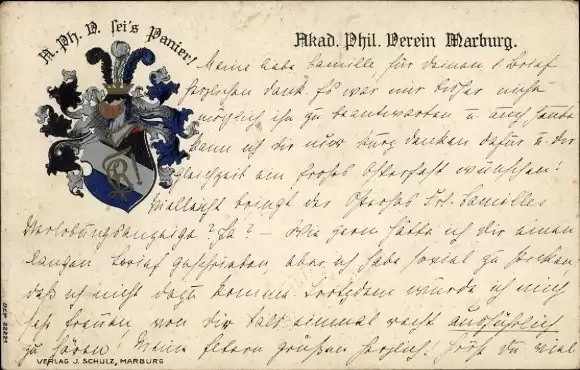 A. Ph. V. sei's Panier!
Akad. Phil. Verein Marburg.
Meine liebe Camilla, für deinen l. Brief
herzlichen Dank. Es war mir bisher nicht
möglich ihn zu beantworten u. auch heute
kann ich dir nur kurz danken dafür u. dir
gleichzeit ein frohes Osterfest wünschen!
Vielleicht bringt der Osterhas Frl. Camilles
Verlobungsanzeige? Ja? – Wie gern hätte ich dir einen
langen Brief geschrieben aber ich habe soviel zu
daß ich nicht dazu komme. Trotzdem würde ich mich
sehr freuen von dir bald einmal recht ausführlich
zu hören! Meine Eltern grüßen herzlich! Hörst du viel
VERLAG J. SCHULZ, MARBURG
DEP 22221